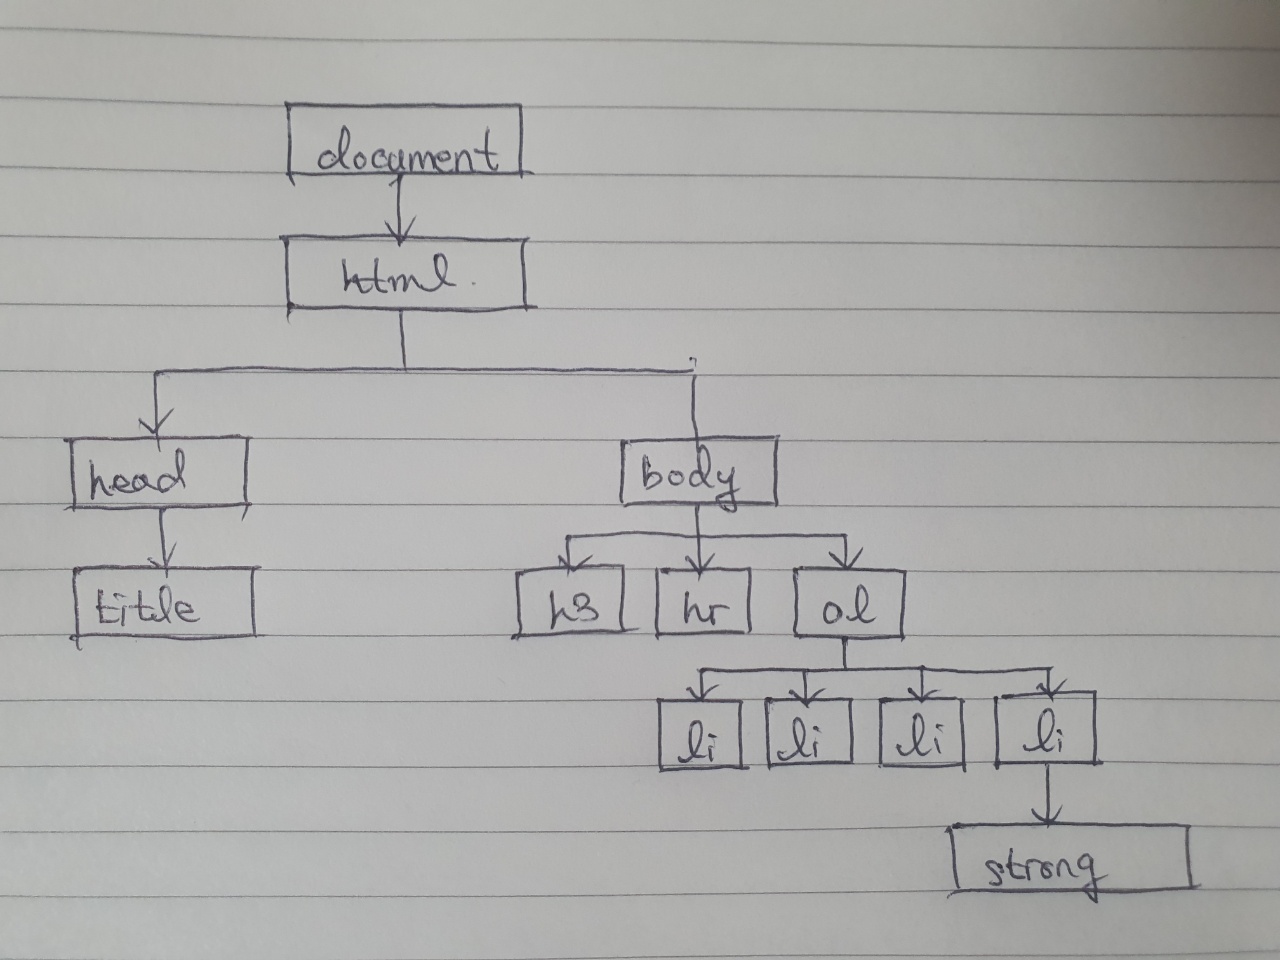 document
html
head body
title h3 hr ol
li li li li
strong